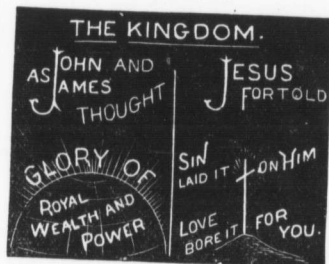 THE KINGDOM.
AS JOHN AND
JAMES
THOUGHT
GLORY OF
ROYAL
WEALTH AND
POWER
JESUS
FORTOLD
SIN
LAID IT ON HIM
LOVE
BORE IT FOR
YOU.